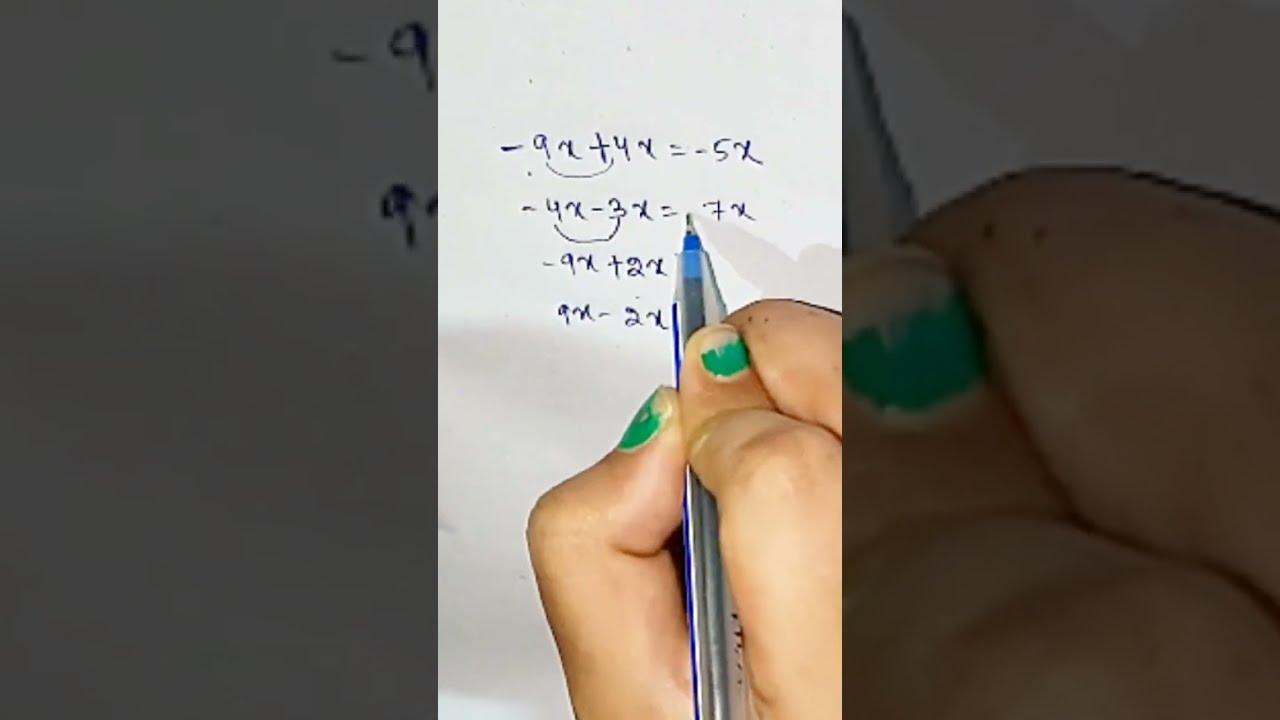 -9x+4x=-5x
-4x-3x= 7x
-9x+2x
9x-2x